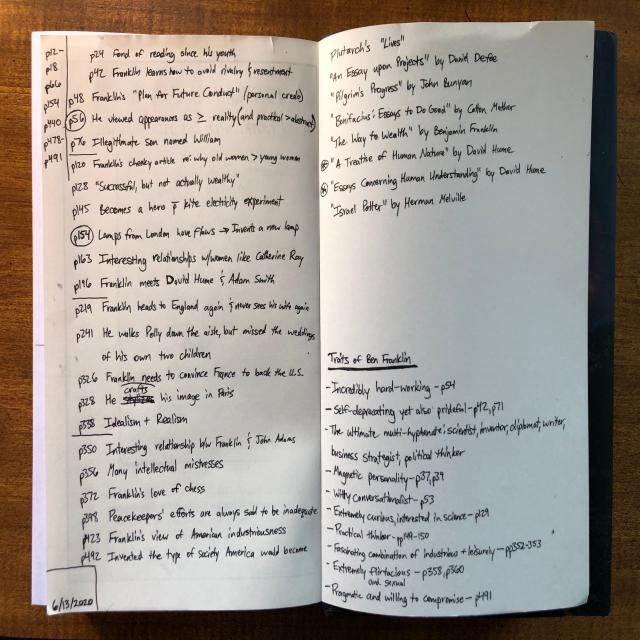 p12-
p18
p66
p154
p440
p478-
p491
p24 Fond of reading since his youth
p42 Franklin learns how to avoid rivalry & resentment
p48 Franklin's "Plan for Future Conduct" (personal credo)
p56 He viewed appearances as ≥ reality (and practical > abstract)
p76 Illegitimate son named William
p120 Franklin's cheeky article re: why old women > young women
p128 "Successful, but not actually wealthy"
p145 Becomes a hero kite electricity experiment
p154 Lamps from London have flaws → Invents a new lamp
p163 Interesting relationships w/women like Catherine Ray
p196 Franklin meets David Hume & Adam Smith
p219 Franklin heads to England again & never sees his wife again
p241 He walks Polly down the aisle, but missed the weddings
of his own two children
p326 Franklin needs to convince France to back the U.S.
p328 He crafts his image in Paris
p338 Idealism + Realism
p350 Interesting relationship b/w Franklin & John Adams
p356 Many intellectual mistresses
p372 Franklin's love of chess
p398 Peacekeepers' efforts are always said to be inadequate
p423 Franklin's view of American industriousness
p492 Invented the type of society America would become
6/13/2020
Plutarch's "Lives"
"An Essay upon Projects" by Daniel Defoe
"Pilgrim's Progress" by John Bunyan
"Bonifacius: Essays to Do Good" by Cotton Mather
"The Way to Wealth" by Benjamin Franklin
"A Treatise of Human Nature" by David Hume
"Essays Concerning Human Understanding" by David Hume
"Israel Potter" by Herman Melville
Traits of Ben Franklin
- Incredibly hard-working - p54
- Self-deprecating yet also prideful - p42, p71
- The ultimate multi-hyphenate: scientist, inventor, diplomat, writer,
business strategist, political thinker
- Magnetic personality - p37, p39
- Witty conversationalist - p53
- Extremely curious, interested in science - p129
- Practical thinker - pp149-150
- Fascinating combination of industrious + leisurely - pp352-353
- Extremely flirtacious - p358, p360
and sexual
- Pragmatic and willing to compromise - p491